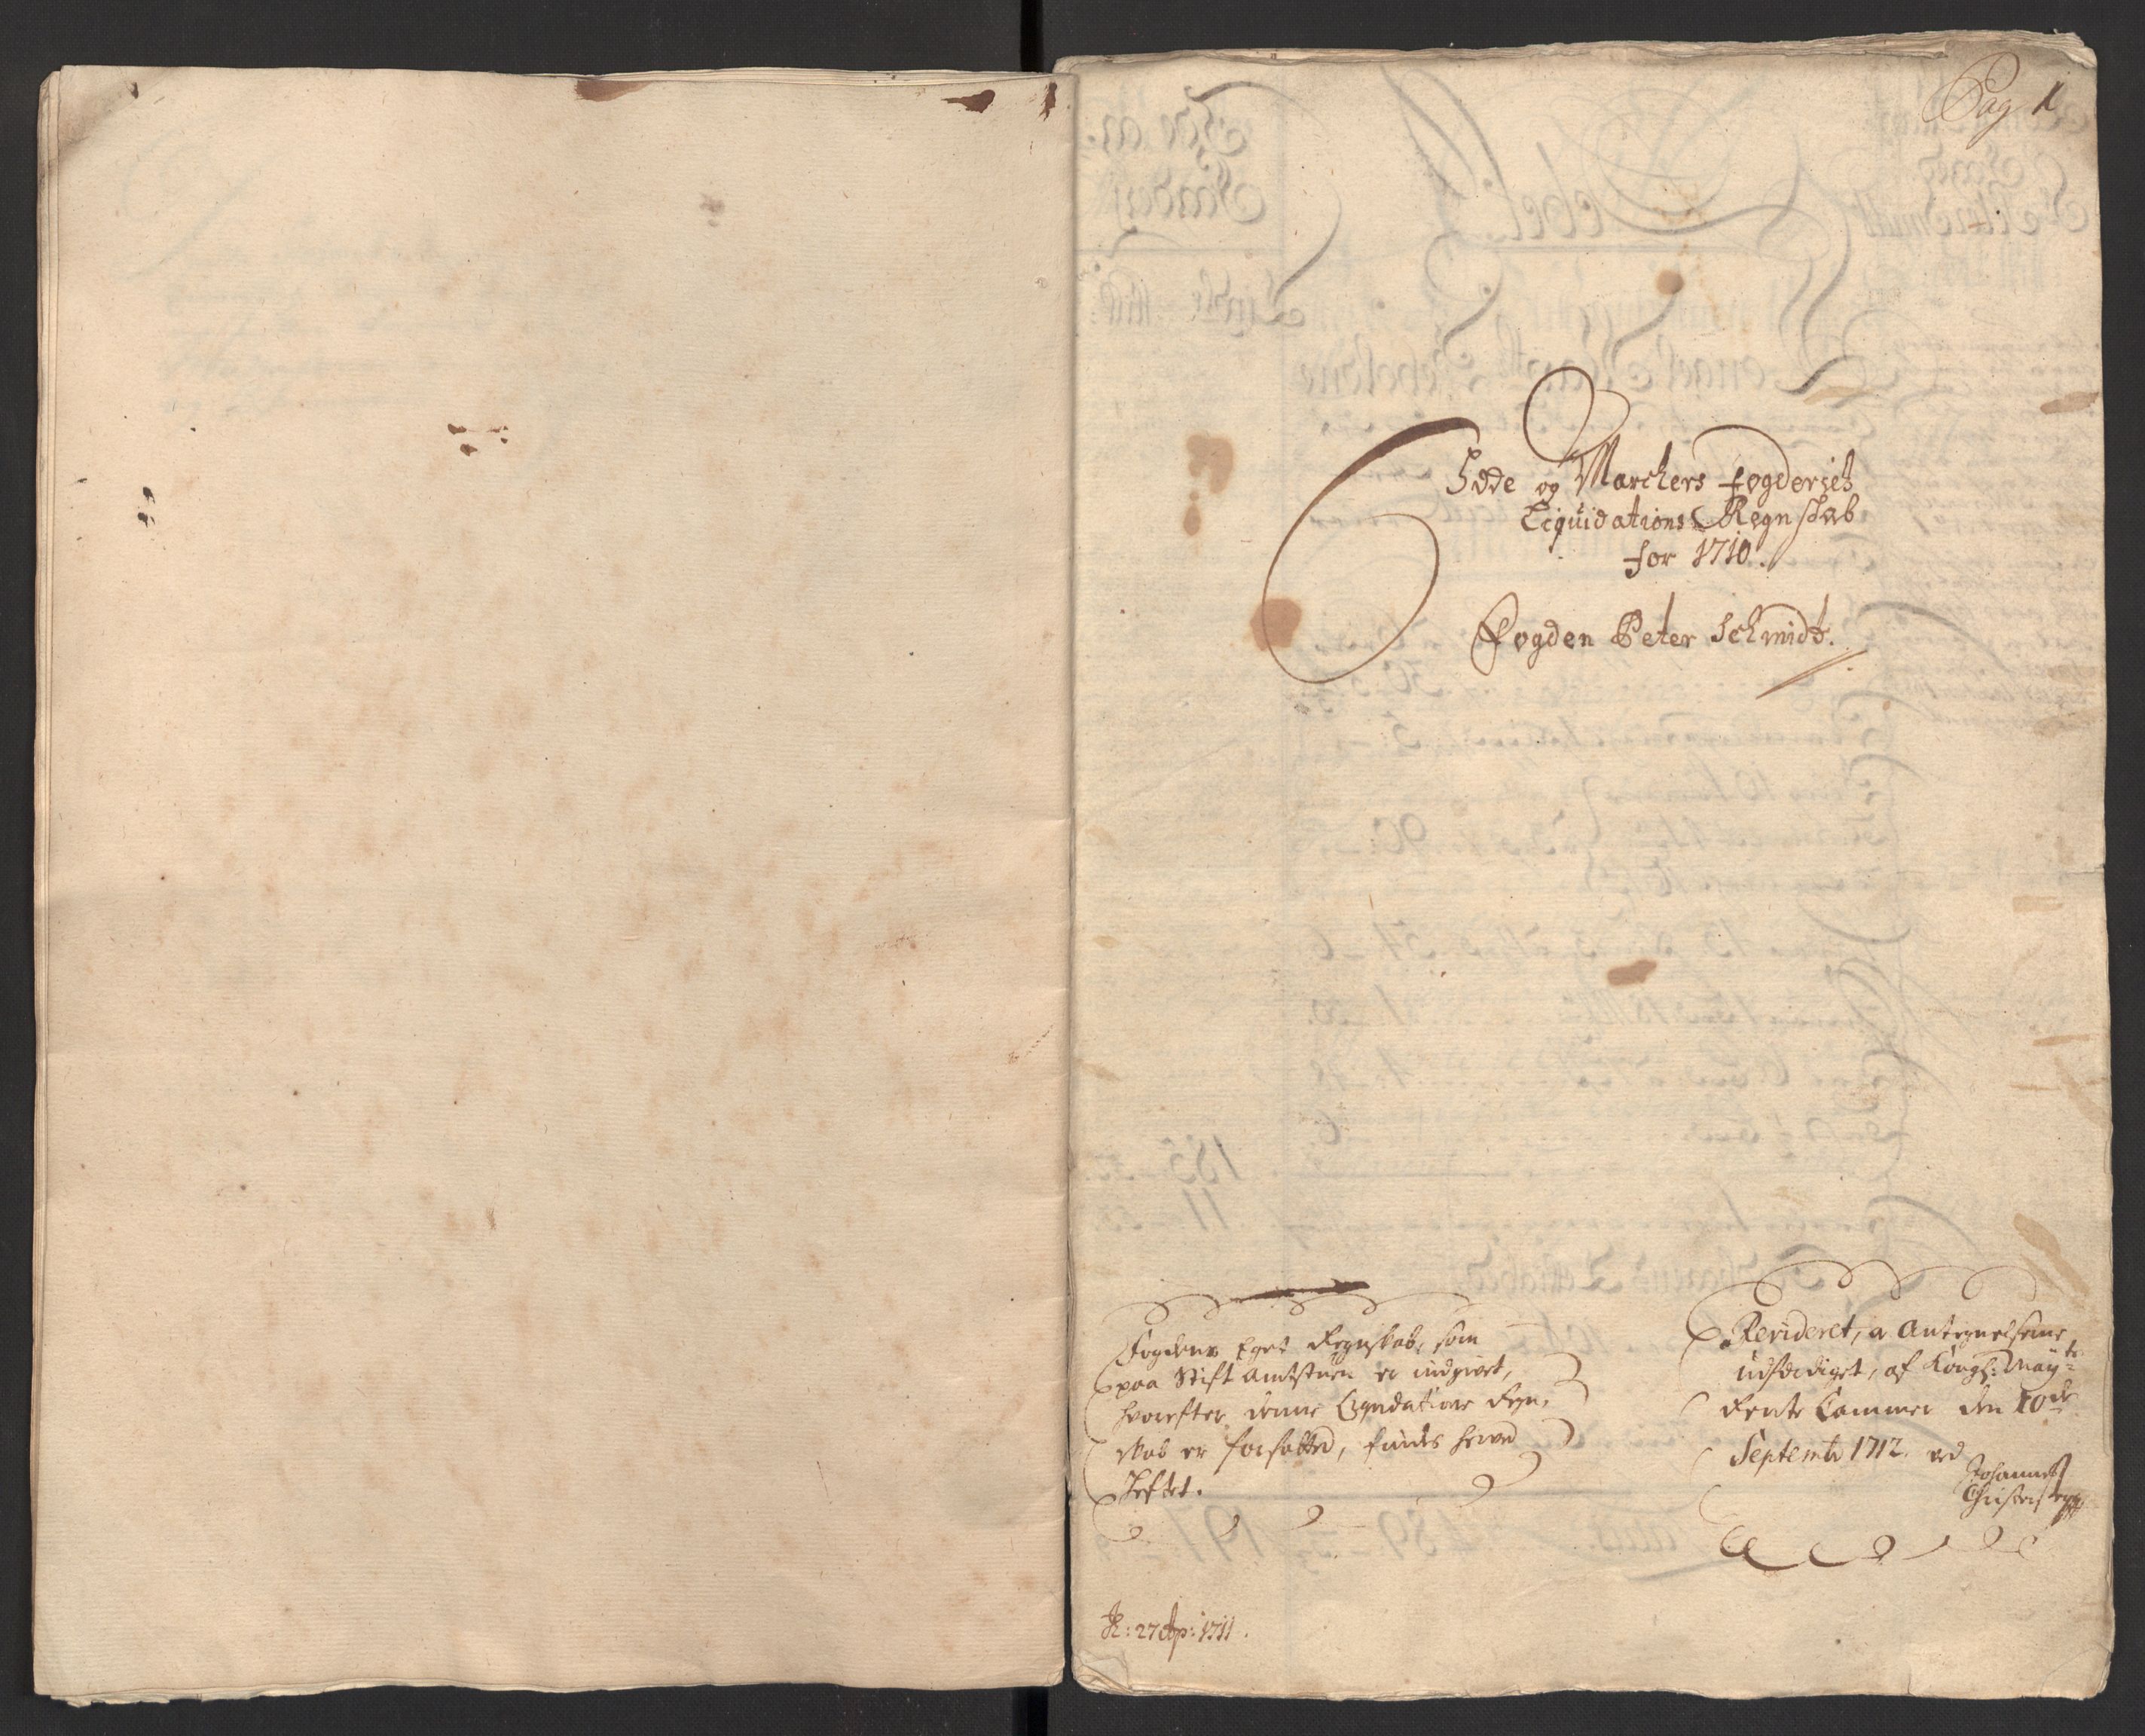 Pag 1
Idde og Marckers fogderiets
Liquidations Regnskab
for 1710.
Fogden Peter Schmidt.
Fogdens Eget Regnskab, som
paa Stift Amtstuen er indgivet,
hvorefter denne Liqvidations Regn,
skab er forfatted, findes herved
Heftet.
Revideret, og Antegnelserne
udstædiget, af Kongl: May.ts
Rente Cammer den 10de
Septembr 1712. ved
Johannes
R: 27 Ap: 1711.